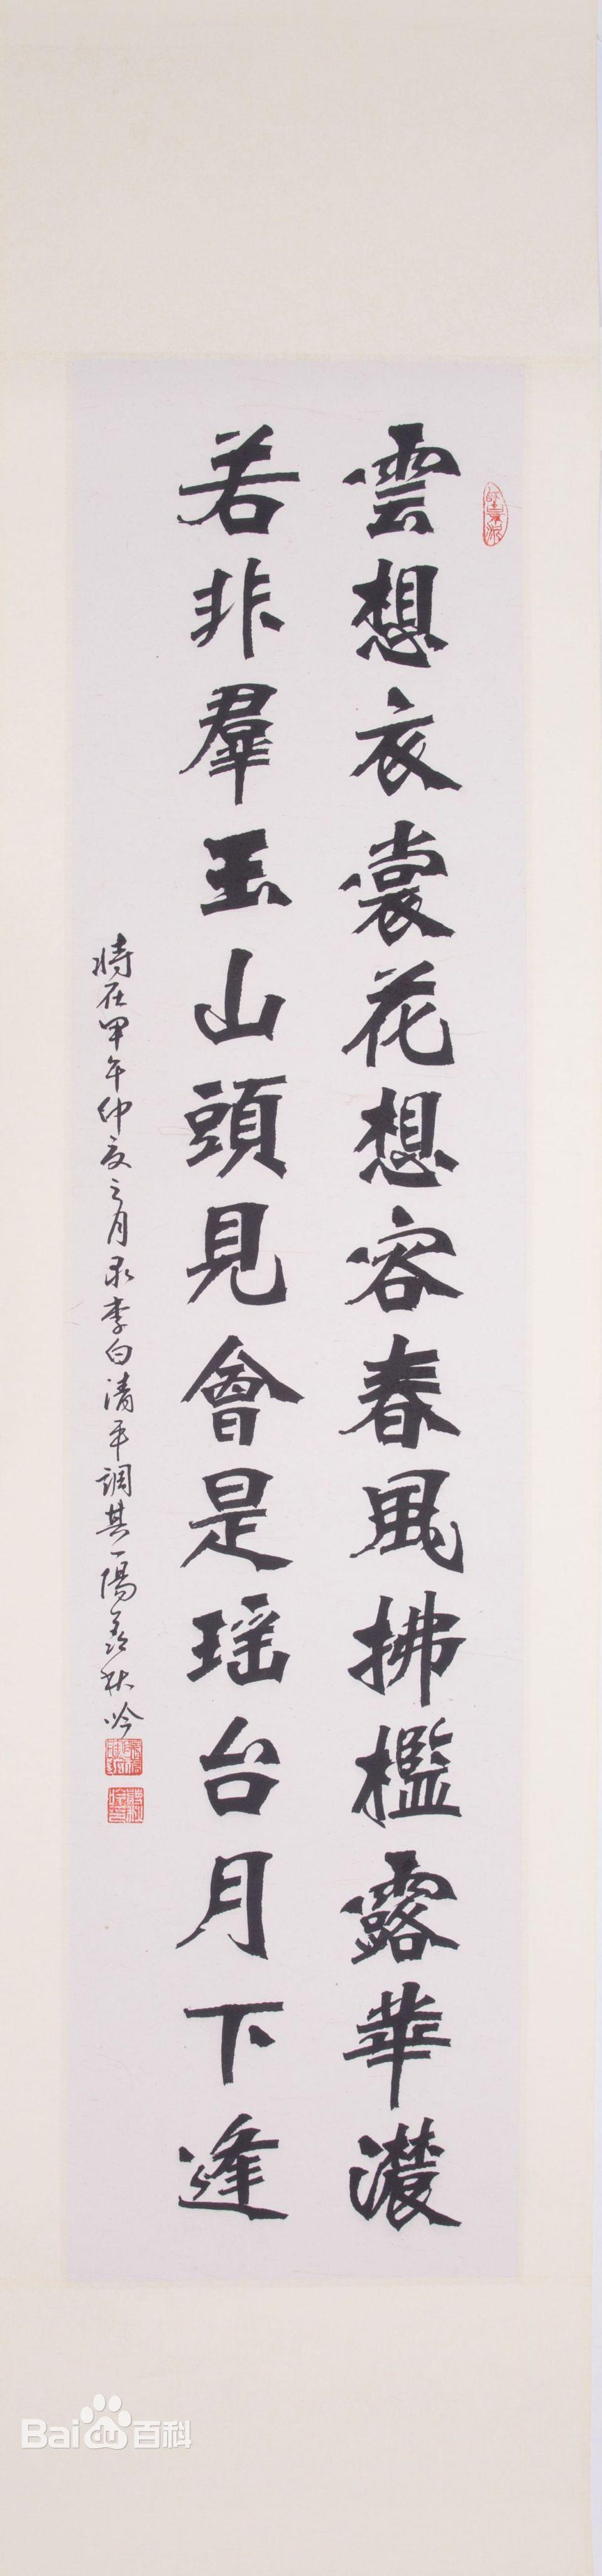 雲想衣裳花想容春風拂檻露華濃
若非羣玉山頭見會是瑶台月下逢
時在甲午仲夏之月录李白清平調其一陽羡秋吟
Bai百科